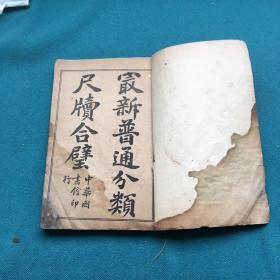 㝡新普通分類
尺牘合璧
中華圖
書館印
行